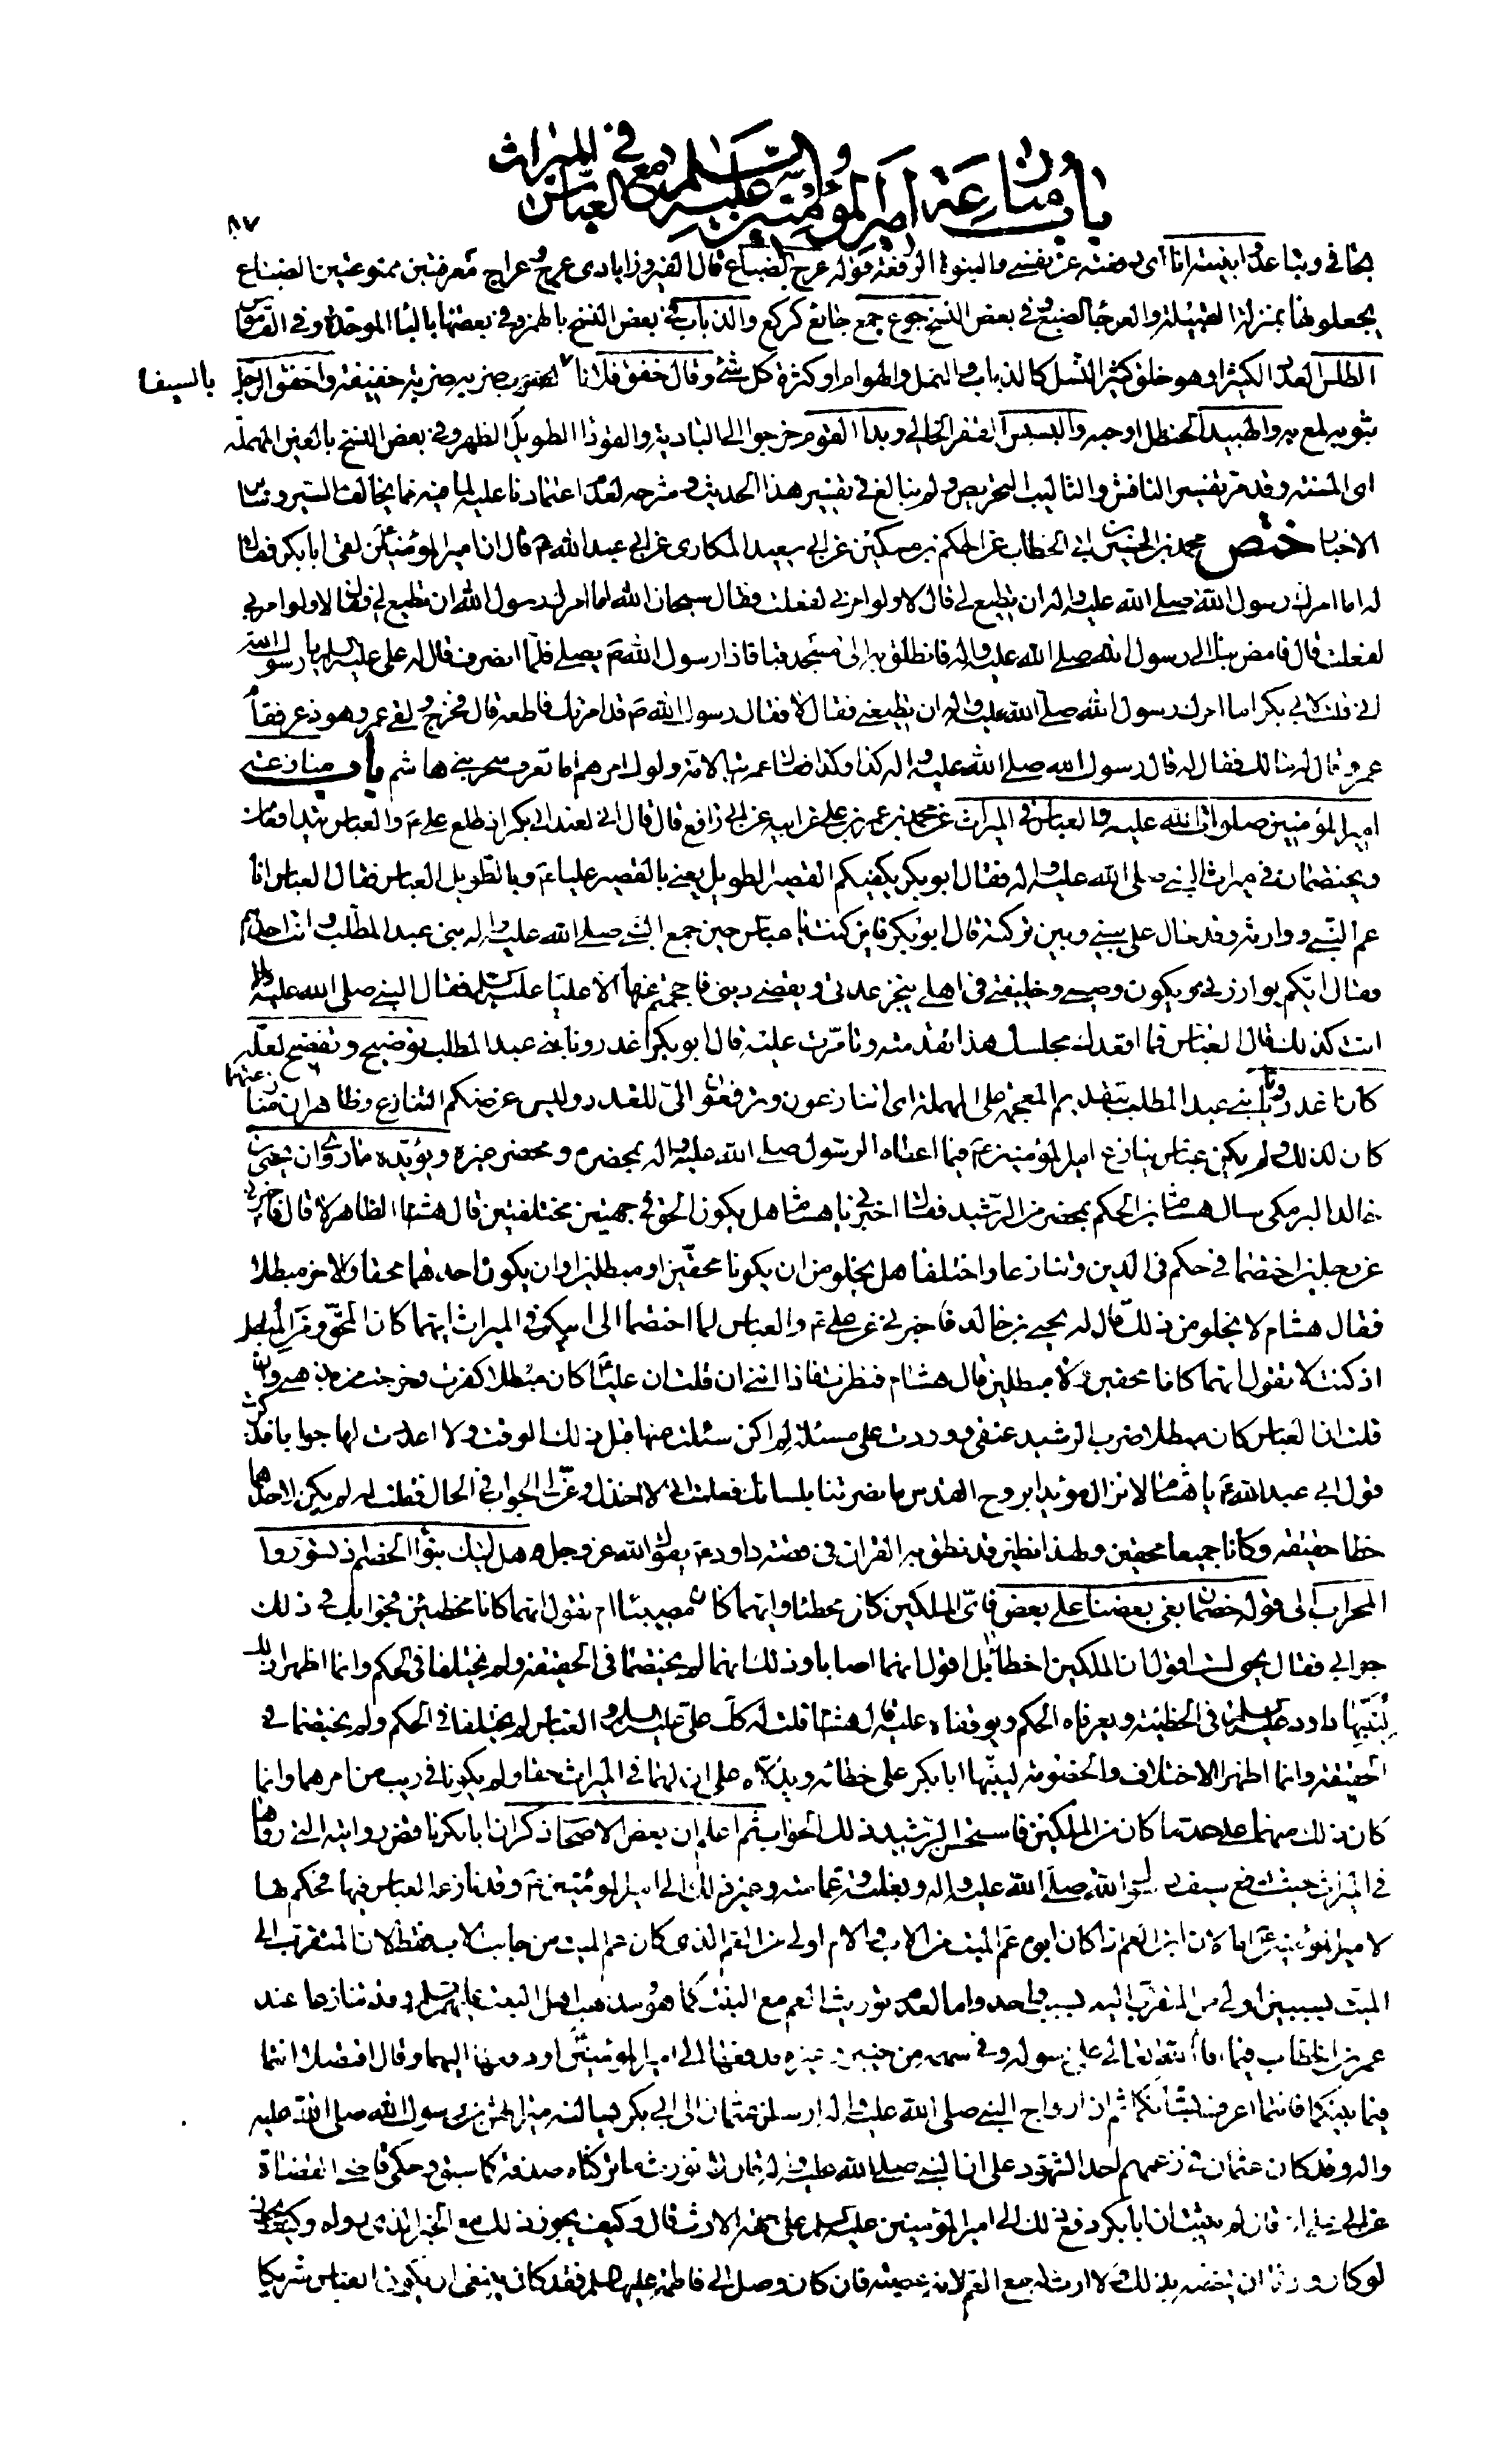 باب منازعة أمير المؤمنين صلوات الله عليه والعباس في الميراث
٨٧
تجافى وتباعد ابنيته انا اى دفعته عن نفسى والبنوة الرفعة قوله عرج الضباع قال الفيروزابادى عرج وعراج معرفتين ممنوعتين الضباع
يجعلونها بمنزلة القبيلة والعرجاء الضبع وفى بعض النسخ جوع جمع جائع كركع والذباب فى بعض النسخ بالهمز وفى بعضها بالباء الموحدة وفى القاموس
الطلس العدد الكثير او هو خلق كثير النسل كالذباب والنمل والهوام او كثرة كل شئ وقال خفق فلانا بالسيف ضربه ضربة خفيفة واخفق الرجل
بثوبه لمع به والهبيد الحنظل او حبه والبسبس القفر الخالى وبدا القوم خرجوا الى البادية والقوداء الطويل الظهر وفى بعض النسخ بالعين المهملة
اى المسنة وقد مر تفسير النافش والتاليب التحريص ولم نبالغ فى تفسير هذا الحديث وشرحه لعدم اعتمادنا عليه لما فيه مما يخالف السير وساير
الاخبار ختص محمد بن الحسين بن ابى الخطاب عن الحكم بن مسكين عن ابى سعيد المكارى عن ابى عبد الله ع قال ان امير المؤمنين ع لقى ابا بكر فقال
له اما امرك رسول الله صلى الله عليه واله ان تطيع لى قال لا ولو امرنى لفعلت فقال سبحان الله اما امرك رسول الله ان تطيع لى فقال لا ولو امرنى
لفعلت قال فامض بنا الى رسول الله صلى الله عليه واله فانطلق به الى مسجد قبا فاذا رسول الله ص يصلى فلما انصرف قال له على عليه السلم يا رسول الله
انى قلت لابى بكر اما امرك رسول الله صلى الله عليه واله ان تطيعنى فقال لا فقال رسول الله ص قد امرتك فاطعه قال فخرج ولقى عمر وهو ذعر فقام
عمر وقال له مالك فقال له قال رسول الله صلى الله عليه واله كذا وكذا فقال عمر تبا لامة ولوك امرهم اما تعرف سحر بنى هاشم باب منازعة
امير المؤمنين صلوات الله عليه والعباس فى الميراث عن محمد بن عمر بن على عن ابيه عن ابى رافع قال قال انى لعند ابى بكر اذ طلع على ع والعباس يتدافعان
ويختصمان فى ميراث النبى صلى الله عليه واله فقال ابو بكر يكفيكم القصير الطويل يعنى بالقصير عليا ع وبالطويل العباس فقال العباس انا
عم النبى ووارثه وقد حال على بينى وبين تركته قال ابو بكر فاين كنت يا عباس حين جمع النبى صلى الله عليه واله بنى عبد المطلب وانت احدهم
فقال ايكم يوازرنى ويكون وصيى وخليفتى فى اهلى ينجز عدتى ويقضى دينى فاحجمتم عنها الا عليا عليه السلم فقال النبى صلى الله عليه واله
انت كذلك قال العباس فما اقعدك مجلسك هذا تقدمته وتامرت عليه قال ابو بكر اغدرونا بنى عبد المطلب توضيح وتفضيح لعله
كان اغدرونا يا بنى عبد المطلب بتقديم المعجمة على المهملة اى اتنازعون وترفعون الى للغدر وليس غرضكم التنازع وظاهر ان منازعتهما
كان لذلك ولم يكن عباس ينازع امير المؤمنين ع فيما اعطاه الرسول صلى الله عليه واله بمحضره ومحضر غيره ويؤيده ما روى ان يحيى بن
خالد البرمكى سال هشام بن الحكم بمحضر من الرشيد فقال اخبرنى يا هشام هل يكون الحق فى جهتين مختلفتين قال هشام الظاهر لا قال فاخبرنى
عن رجلين اختصما فى حكم فى الدين وتنازعا واختلفا هل يخلو من ان يكونا محقين او مبطلين او ان يكون احدهما محقا والاخر مبطلا
فقال هشام لا يخلو من ذلك قال له يحيى بن خالد فاخبرنى عن على ع والعباس لما اختصما الى ابى بكر فى الميراث ايهما كان المحق ومن المبطل
اذ كنت لا تقول انهما كانا محقين ولا مبطلين قال هشام فنظرت فاذا اننى ان قلت ان عليا ع كان مبطلا كفرت وخرجت من مذهبى وان
قلت ان العباس كان مبطلا ضرب الرشيد عنقى ووردت على مسئلة لم اكن سئلت عنها قبل ذلك الوقت ولا اعددت لها جوابا فذكرت
قول ابى عبد الله ع يا هشام لا تزال مؤيدا بروح القدس ما نصرتنا بلسانك فعلمت انى لا اخذل وعن لى الجواب فى الحال فقلت له لم يكن لاحدهما
خطا حقيقة وكانا جميعا محقين ولهذا نظير قد نطق به القران فى قصة داود ع يقول الله عز وجل وهل اتيك نبؤا الخصم اذ تسوروا
المحراب الى قوله خصمان بغى بعضنا على بعض فاى الملكين كان مخطئا وايهما كان مصيبا ام تقول انهما كانا مخطئين فجوابك فى ذلك
جوابى فقال يحيى لست اقول ان الملكين اخطئا بل اقول انهما اصابا وذلك انهما لم يختصما فى الحقيقة ولم يختلفا فى الحكم وانما اظهرا ذلك
لينبها داود عليه السلم فى الخطيئة ويعرفاه الحكم ويوقفاه عليه قال هشام قلت له كذلك على عليه السلم والعباس لم يختلفا فى الحكم ولم يختصما فى
الحقيقة وانما اظهرا الاختلاف والخصومة لينبها ابا بكر على خطائه ويدلاه على ان لهما فى الميراث حقا ولم يكونا فى ريب من امرهما وانما
كان ذلك منهما على حد ما كان من الملكين فاستحسن الرشيد ذلك الجواب ثم اعلم ان بعض الاصحاب ذكر ان ابا بكر ناقض روايته التى رواها
فى الميراث حيث دفع سيف رسول الله صلى الله عليه واله وبغلته وعمامته وغير ذلك الى امير المؤمنين ع وقد نازعه العباس فيها فحكم بها
لامير المؤمنين ع اما لان ابن العم اذا كان ابوه عم الميت من الاب والام اولى من العم الذى كان عم الميت من جانب الاب فقط لان المتقرب الى
الميت بسببين اولى من المتقرب اليه بسبب واحد واما لعدم توريث العم مع البنت كما هو مذهب اهل البيت عليهم السلم وقد تنازعا عند
عمر بن الخطاب فيما افاء الله تعالى على رسوله وفى سهمه من خيبر وغيره فدفعها الى امير المؤمنين ع او دفعها اليهما وقال اقتصلا انتما
فيما بينكما فانتما اعرف بشانكما ثم ان ازواج النبى صلى الله عليه واله ارسلن عثمان الى ابى بكر يسالنه ميراثهن من رسول الله صلى الله عليه
واله وقد كان عثمان فى زعمهم احد الشهود على ان النبى صلى الله عليه واله لا يورث ما تركناه صدقة كما سبق وحكى قاضى القضاة
عن ابى على انه قال لم يثبت ان ابا بكر دفع ذلك الى امير المؤمنين عليه السلم على جهة الارث قال وكيف يجوز ذلك مع الخبر الذى رواه وكيف يجوز
لو كان وارثا ان يخصه بذلك ولا ارث له مع العم لانه عصبة فان كان وصل الى فاطمة عليها السلم فقد كان ينبغى ان يكون العباس شريكا